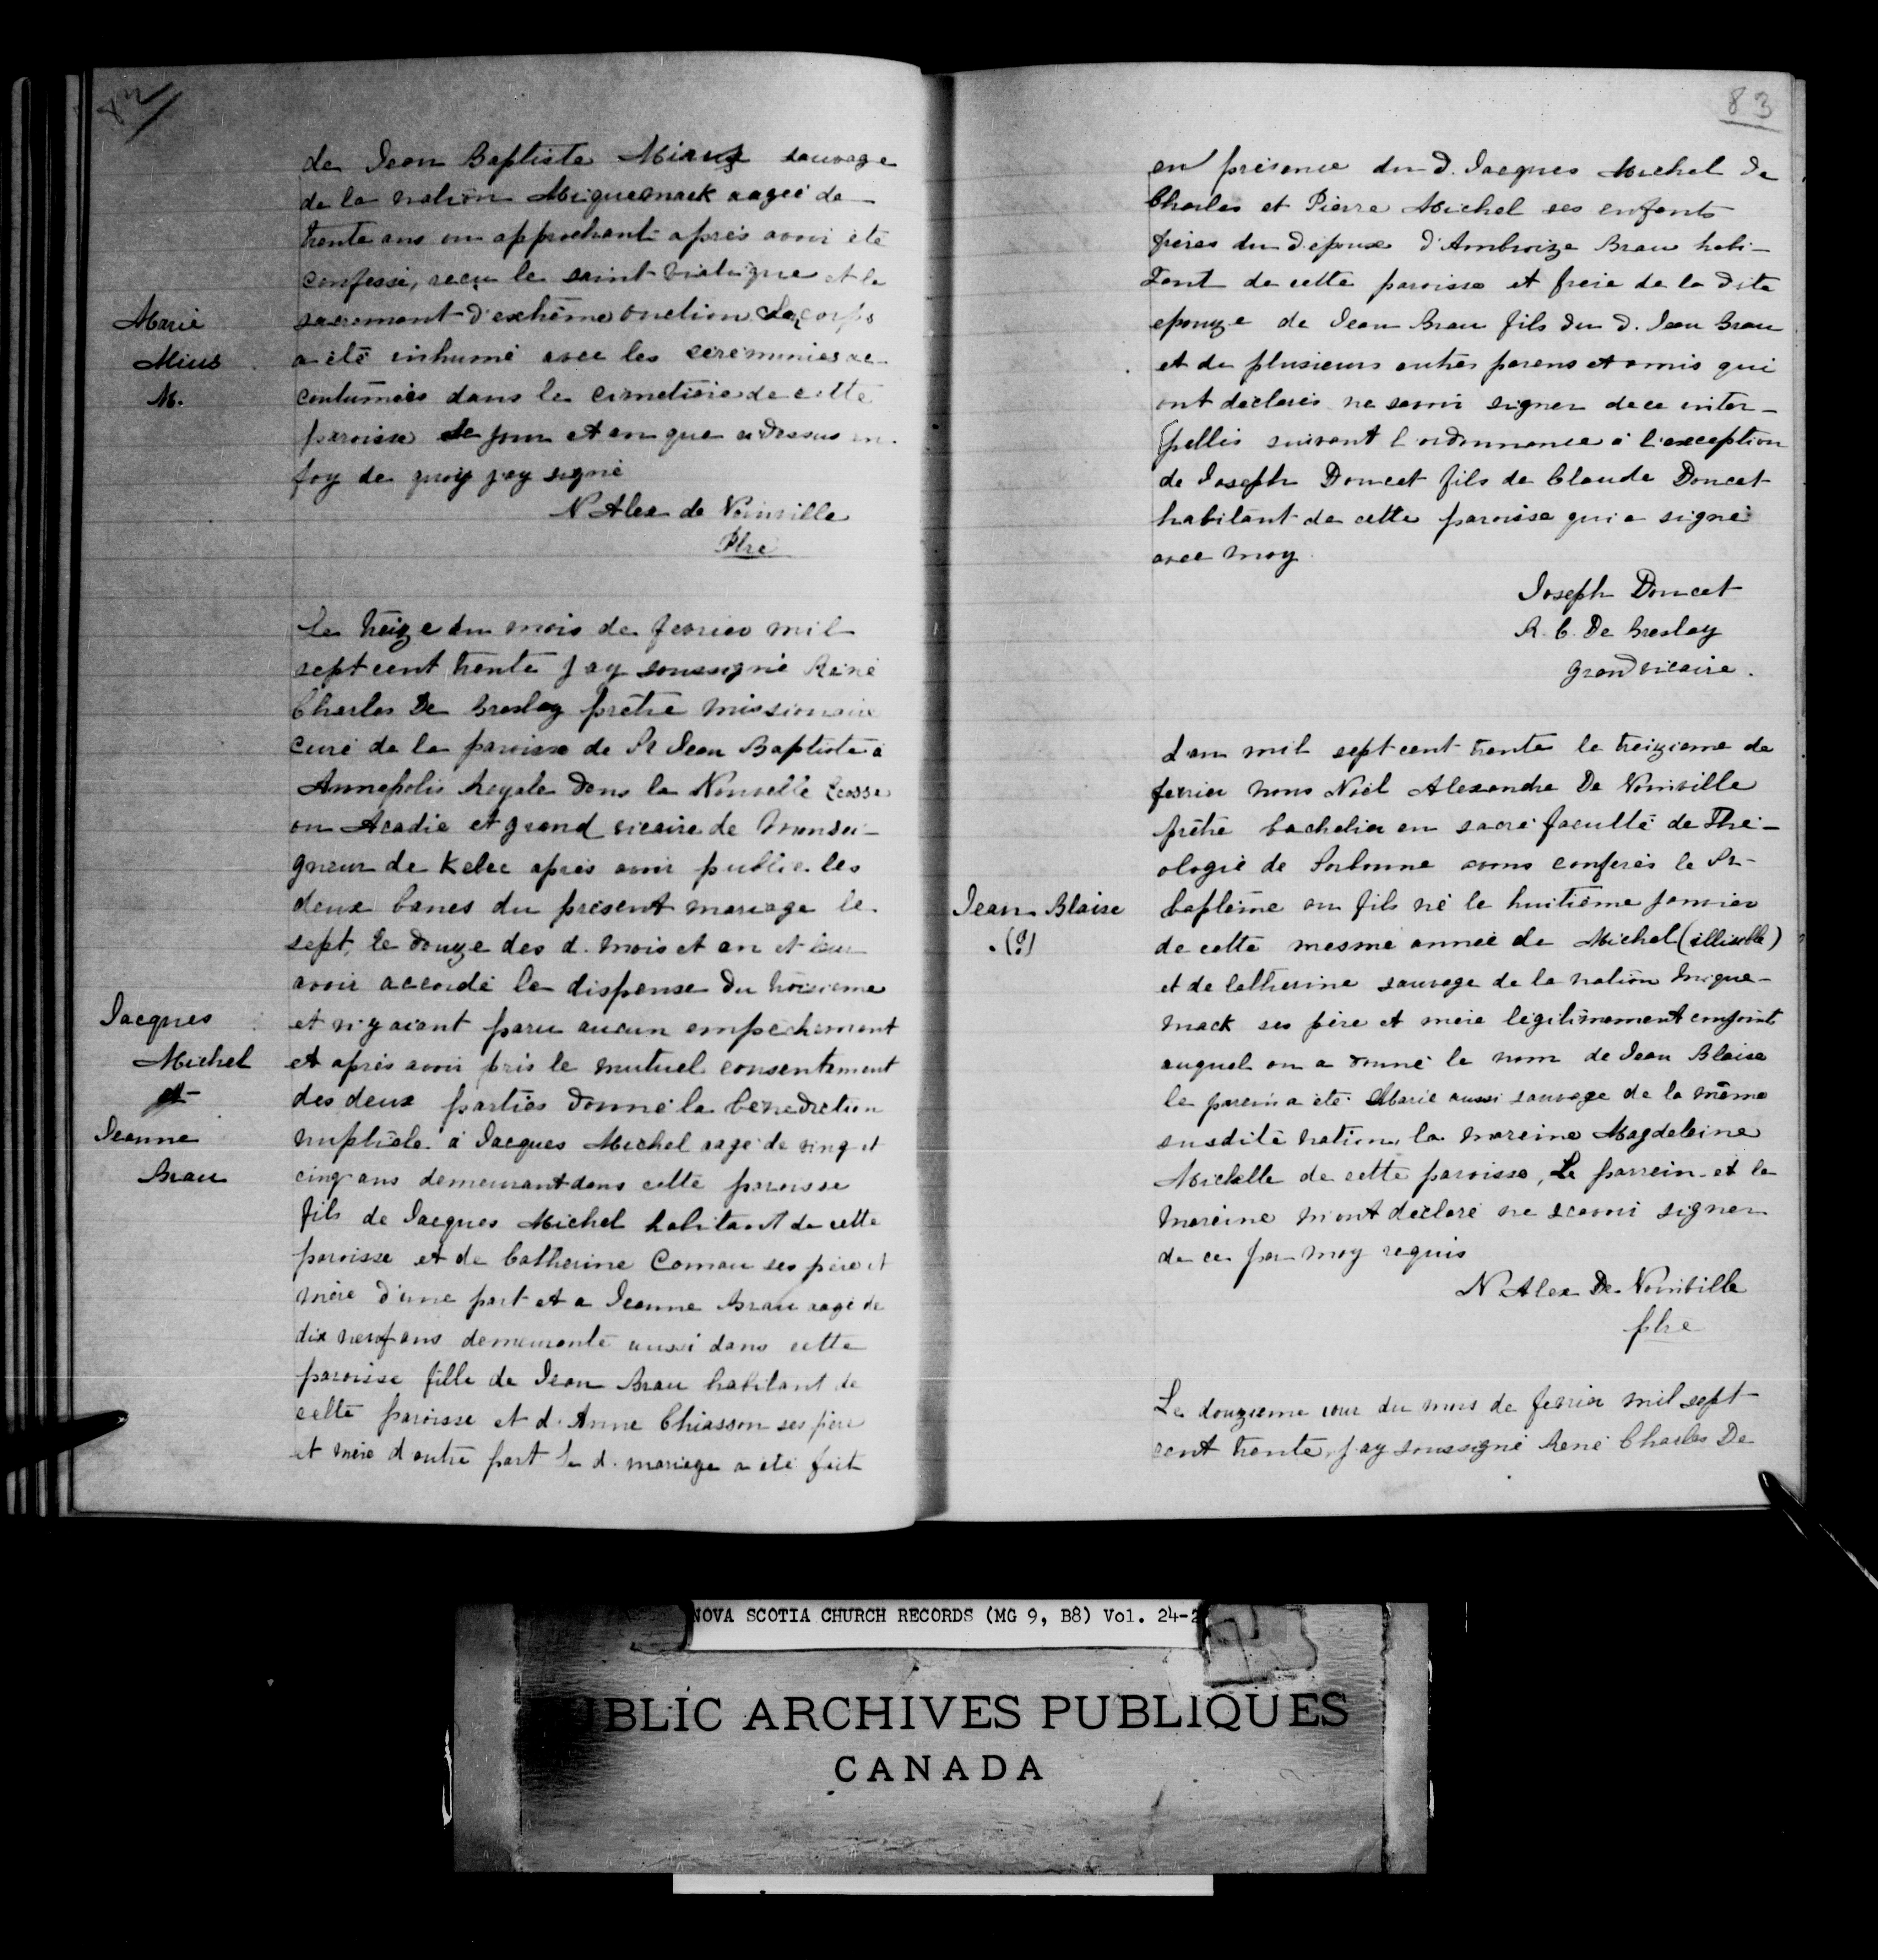 82
de Jean Baptiste Mius sauvage
de la nation Miquemack aageé de
trente ans ou approchant après avoir été
confessé, reçu le saint viatique et le
sacrement d'extrême onction Le corps
a été inhumé avec les cérémonies ac-
coutumées dans le cimetière de cette
paroisse le jour et an que ci dessus en
foy de quoy j'ay signé
N Alex de Noinville
Ptre
Marie
Mius
M.
Le treize du mois de fevrier mil
sept cent trente j'ay soussigné Réné
Charles De Breslay prêtre missionaire
curé de la paroisse de St Jean Baptiste à
Annapolis Royale dans la Nouvelle Ecosse
ou Acadie et grand vicaire de Monsei-
gneur de Kebec après avoir publié les
deux bancs du present mariage le
sept, le douze des d. mois et an et leur
avoir accordé la dispense du troisieme
et n'y aiant paru aucun empechement
et après avoir pris le mutuel consentement
des deux parties donné la bénédiction
nuptiale à Jacques Michel aagé de ving et
cinq ans demeurant dans cette paroisse
fils de Jacques Michel habitant de cette
paroisse et de Catherine Comau ses père et
mère d'une part et a Jeanne Brau aagé de
dix neuf ans demeurante aussi dans cette
paroisse fille de Jean Brau habitant de
cette paroisse et d'Anne Chiasson ses père
et mère d'autre part Le d. mariage a été fait
Jacques
Michel
et
Jeanne
Brau
83
en présence du d. Jacques Michel de
Charles et Pierre Michel ses enfants
frères du d'époux d'Ambroize Brau habi-
tant de cette paroisse et frere de la dite
epouze de Jean Brau fils du d. Jean Brau
et de plusieurs autres parens et amis qui
ont déclarés ne savoir signer de ce inter-
pellés suivant l'ordonnance à l'exception
de Joseph Doucet fils de Claude Doucet
habitant de cette paroisse qui a signé
avec moy
Joseph Doucet
R. C. De Breslay
grand vicaire.
L'an mil sept cent trente le treizieme de
fevrier nous Noël Alexandre De Noinville
prêtre bachelier en sacré faculté de Thé-
ologie de Sorbonne avons conférés le St
baptême au fils né le huitième janvier
de cette mesme année de Michel (illisible)
et de Catherine sauvage de la nation Mique-
mack ses père et mère légitimement conjoint
auquel on a donné le nom de Jean Blaise
le parein a été Marie aussi sauvage de la même
susdite nation, la mareine Magdeleine
Michelle de cette paroisse, Le parrein et la
mareine m'ont déclaré ne scavoir signer
de ce par moy requis
N. Alex De Noinville
ptre
Jean Blaise
(?)
Le douzieme jour du mois de fevrier mil sept
cent trente, j'ay soussigné René Charles De
NOVA SCOTIA CHURCH RECORDS (MG 9, B8) Vol. 24-2
BLIC ARCHIVES PUBLIQUES
CANADA